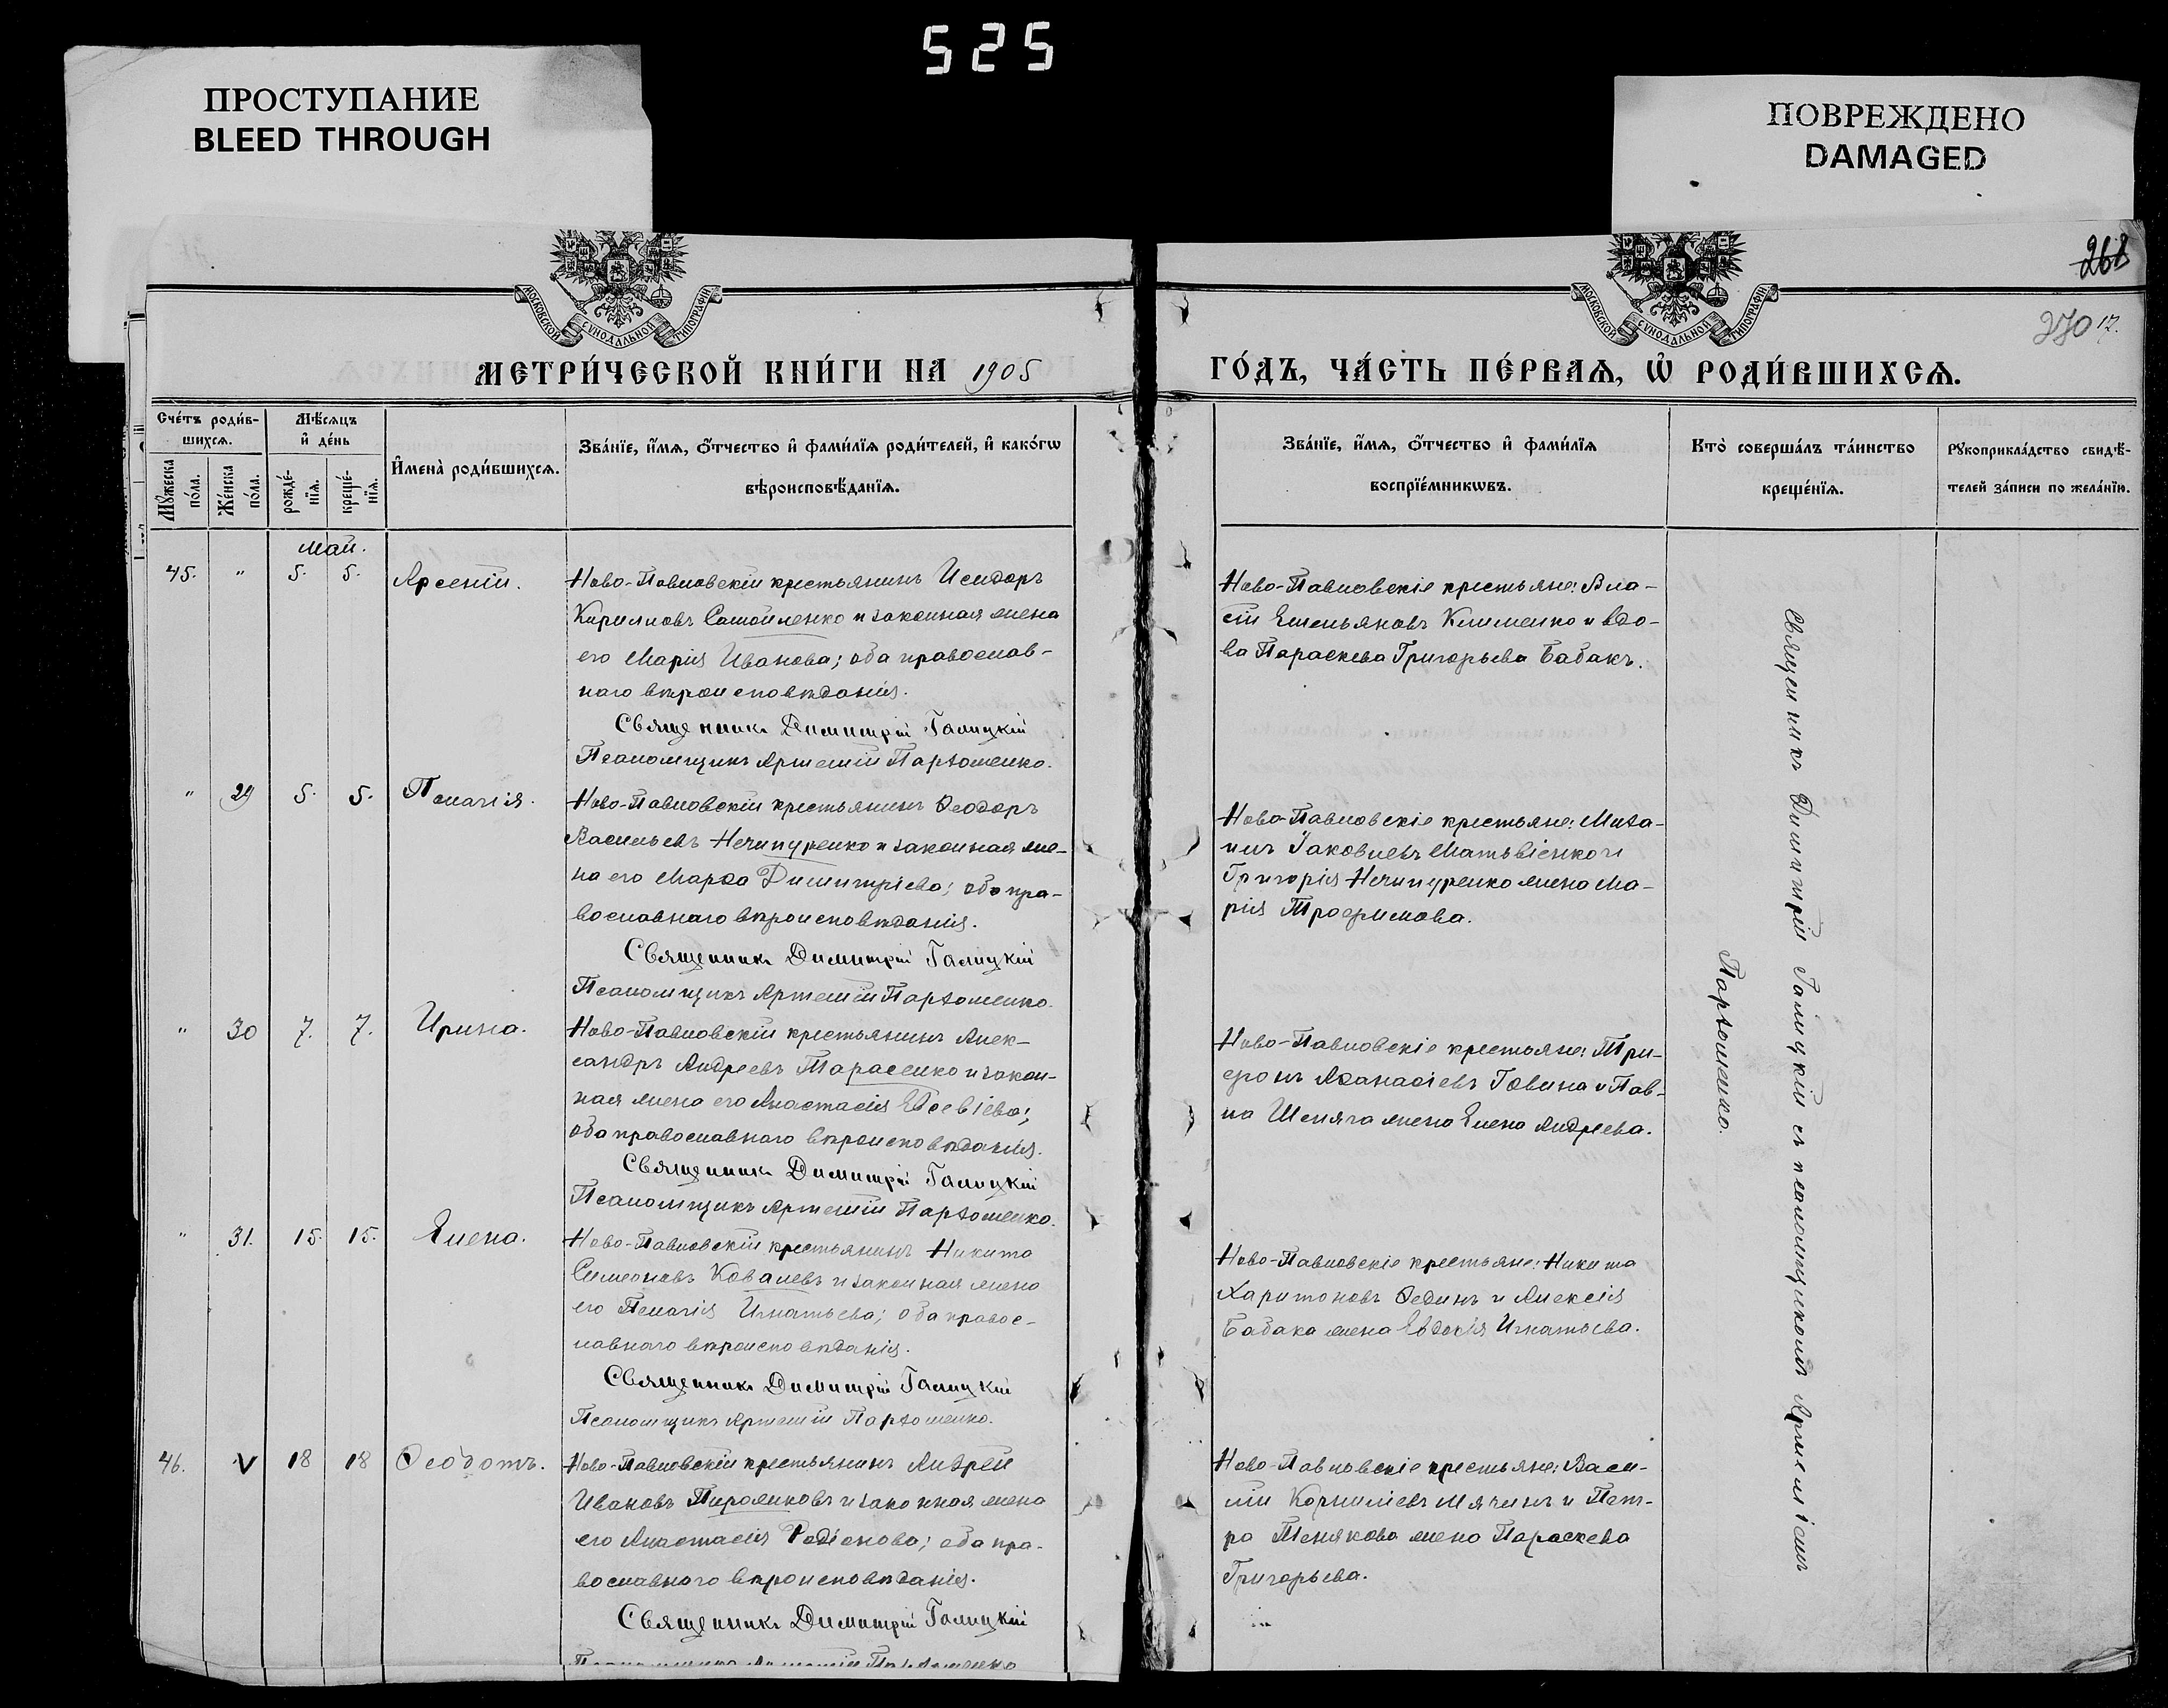 525
ПРОСТУПАНИЕ
BLEED THROUGH
ПОВРЕЖДЕНО
DAMAGED
268
270 17.
МОСКОВСКОЙ СѴНОДАЛЬНОЙ ТИПОГРАФІИ
МОСКОВСКОЙ СѴНОДАЛЬНОЙ ТИПОГРАФІИ
МЕТРИ́ЧЕСКОЙ КНИ́ГИ НА 1905
ГО́ДЪ, ЧА́СТЬ ПЕ́РВАѦ, Ѡ҆ РОДИ́ВШИХСѦ.
Сче́тъ роди́в-
шихсѧ.
Мꙋ́жеска по́ла.
Же́нска по́ла.
Мѣ́сѧцъ
и҆ де́нь
рожде́-нїѧ.
креще́-нїѧ.
И҆мена̀ роди́вшихсѧ.
Зва́нїе, и҆́мѧ, ѻ҆́тчество и҆ фами́лїѧ роди́телей, и҆ како́гѡ
вѣроисповѣ́данїѧ.
Зва́нїе, и҆́мѧ, ѻ҆́тчество и҆ фами́лїѧ
воспрїе́мникѡвъ.
Кто̀ соверша́лъ та́инство
креще́нїѧ.
Рꙋкоприкла́дство свидѣ́-
телей за́писи по жела́нїю.
Май.
45. " 5. 5. Арсеній.
Ново-Павловскій крестьянинъ Исидоръ
Кириловъ Самойленко и законная жена
его Марія Иванова; оба православ-
наго вѣроисповѣданія.
Священникъ Димитрій Галицкій
Псаломщикъ Артемій Пархоменко.
Ново-Павловскіе крестьяне: Вла-
сій Емельяновъ Клименко и вдо-
ва Параскева Григорьева Бабакъ.
" 29 5. 5. Пелагія.
Ново-Павловскій крестьянинъ Ѳеодоръ
Васильевъ Нечипуренко и законная же-
на его Марѳа Димитріева; оба пра-
вославнаго вѣроисповѣданія.
Священникъ Димитрій Галицкій
Псаломщикъ Артемій Пархоменко.
Ново-Павловскіе крестьяне: Миха-
илъ Іаковлевъ Матвіенко и
Григорія Нечипуренко жена Ма-
рія Трофимова.
" 30 7. 7. Ирина.
Ново-Павловскій крестьянинъ Алек-
сандръ Андреевъ Тарасенко и закон-
ная жена его Анастасія Евсевіева;
оба православнаго вѣроисповѣданія.
Священникъ Димитрій Галицкій
Псаломщикъ Артемій Пархоменко.
Ново-Павловскіе крестьяне: Три-
фонъ Аѳанасіевъ Говина и Пав-
ла Шеняга жена Елена Андреева.
" 31. 15. 15. Елена.
Ново-Павловскій крестьянинъ Никита
Симеоновъ Ковалевъ и законная жена
его Пелагія Игнатьева; оба правос-
лавнаго вѣроисповѣданія.
Священникъ Димитрій Галицкій
Псаломщикъ Артемій Пархоменко.
Ново-Павловскіе крестьяне: Никита
Харитоновъ Ѳединъ и Алексія
Бабака жена Евдокія Игнатьева.
46. V 18 18 Ѳеодотъ.
Ново-Павловскій крестьянинъ Андрей
Ивановъ Пирожковъ и законная жена
его Анастасія Родіонова; оба пра-
вославнаго вѣроисповѣданія.
Священникъ Димитрій Галицкій
Псаломщикъ Артемій Пархоменко
Ново-Павловскіе крестьяне: Васи-
лій Корниліевъ Мячинъ и Пет-
ра Тенякова жена Параскева
Григорьева.
Священникъ Димитрій Галицкій съ псаломщикомъ Артеміемъ
Пархоменко.